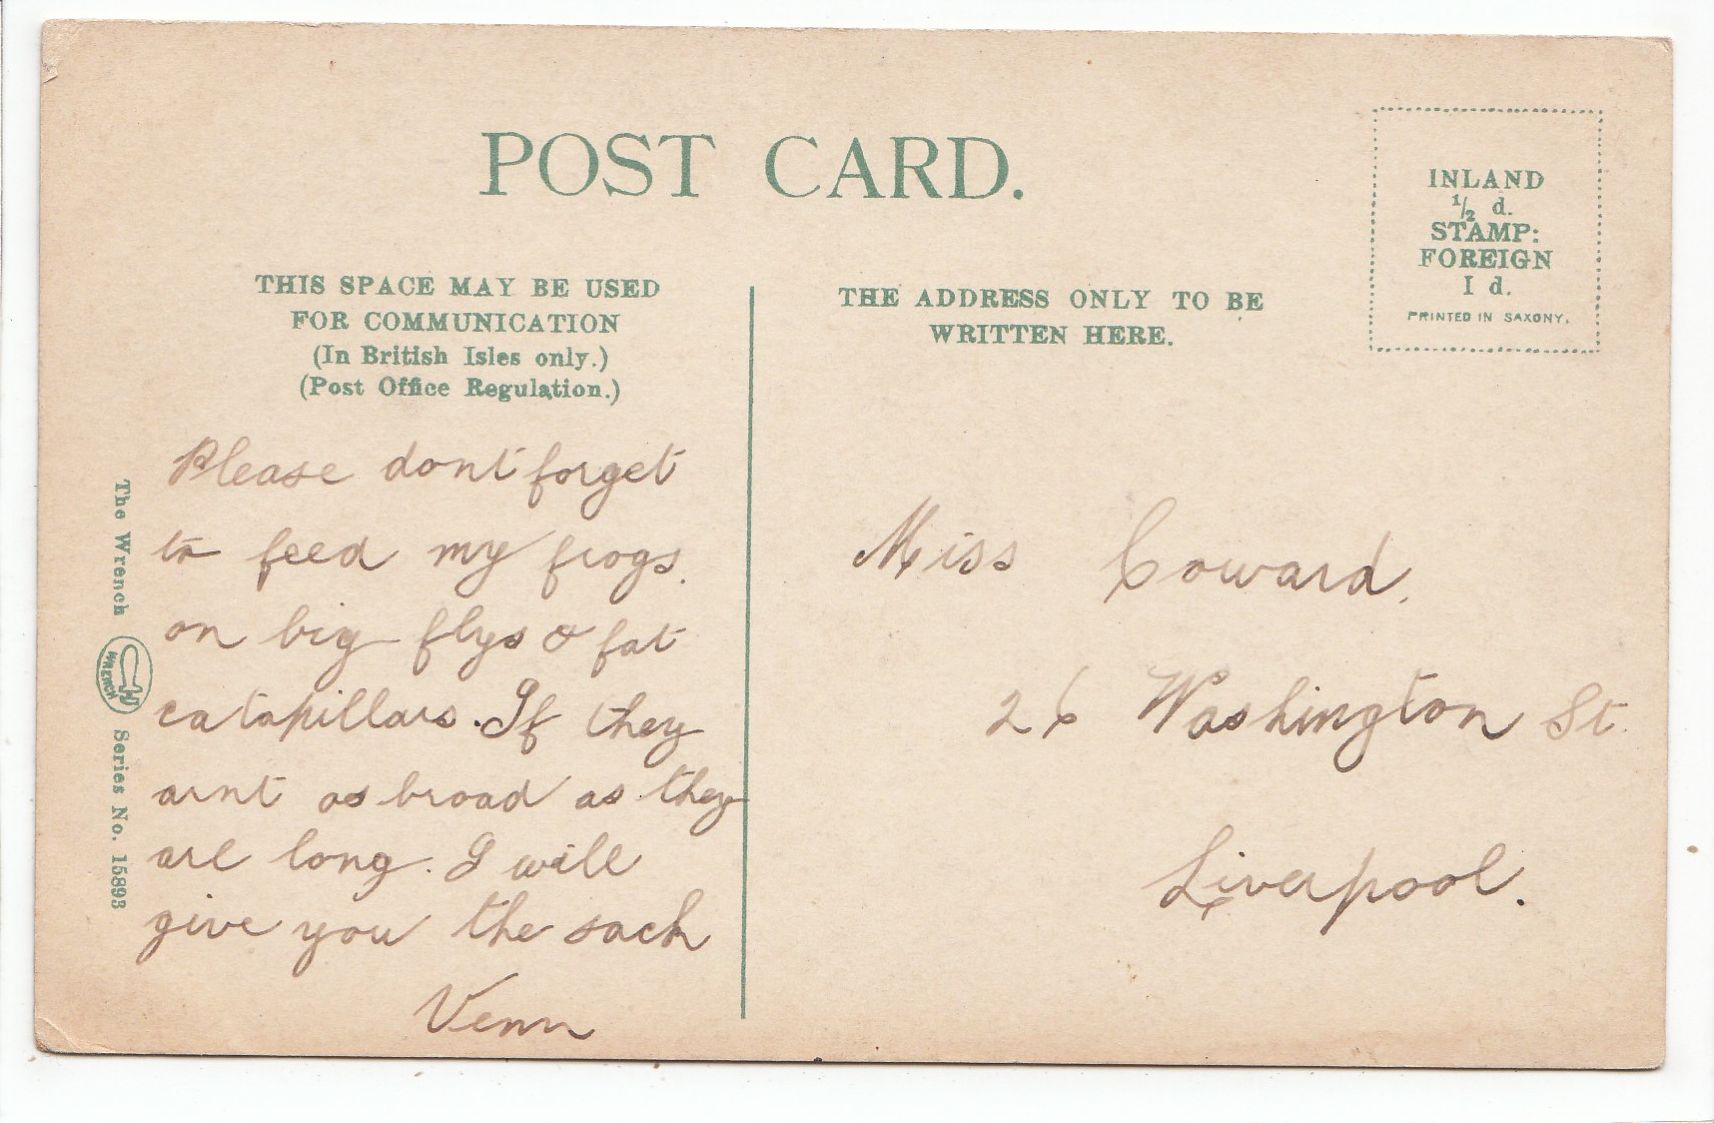 POST CARD.
INLAND
½ d.
STAMP:
FOREIGN
I d.
PRINTED IN SAXONY.
THIS SPACE MAY BE USED
FOR COMMUNICATION
(In British Isles only.)
(Post Office Regulation.)
THE ADDRESS ONLY TO BE
WRITTEN HERE.
The Wrench WRENCH Series No. 15893
Please dont forget
to feed my frogs.
on big flys & fat
catapillars. If they
arnt as broad as they
are long. I will
give you the sack
Venn
Miss Coward.
26 Washington St.
Liverpool.